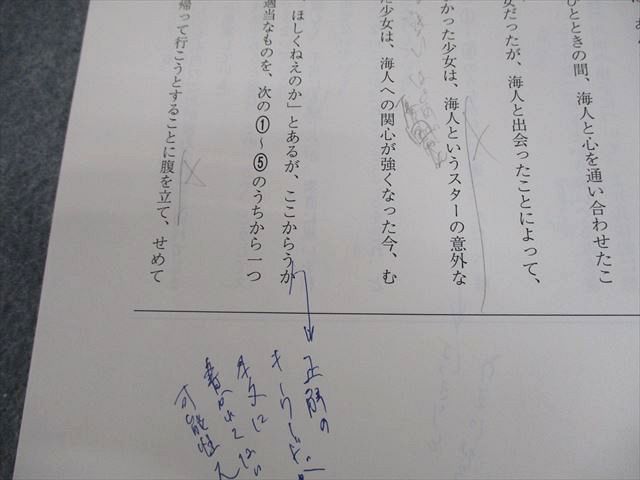 ひとときの間、海人と心を通い合わせたこ
女だったが、海人と出会ったことによって、
かった少女は、海人というスターの意外な
た少女は、海人への関心が強くなった今、む
ほしくねえのか」とあるが、ここからうか
適当なものを、次の①～⑤のうちから一つ
帰って行こうとすることに腹を立て、せめて
正解の
キーワード
文字に
書かれてない
可能性大